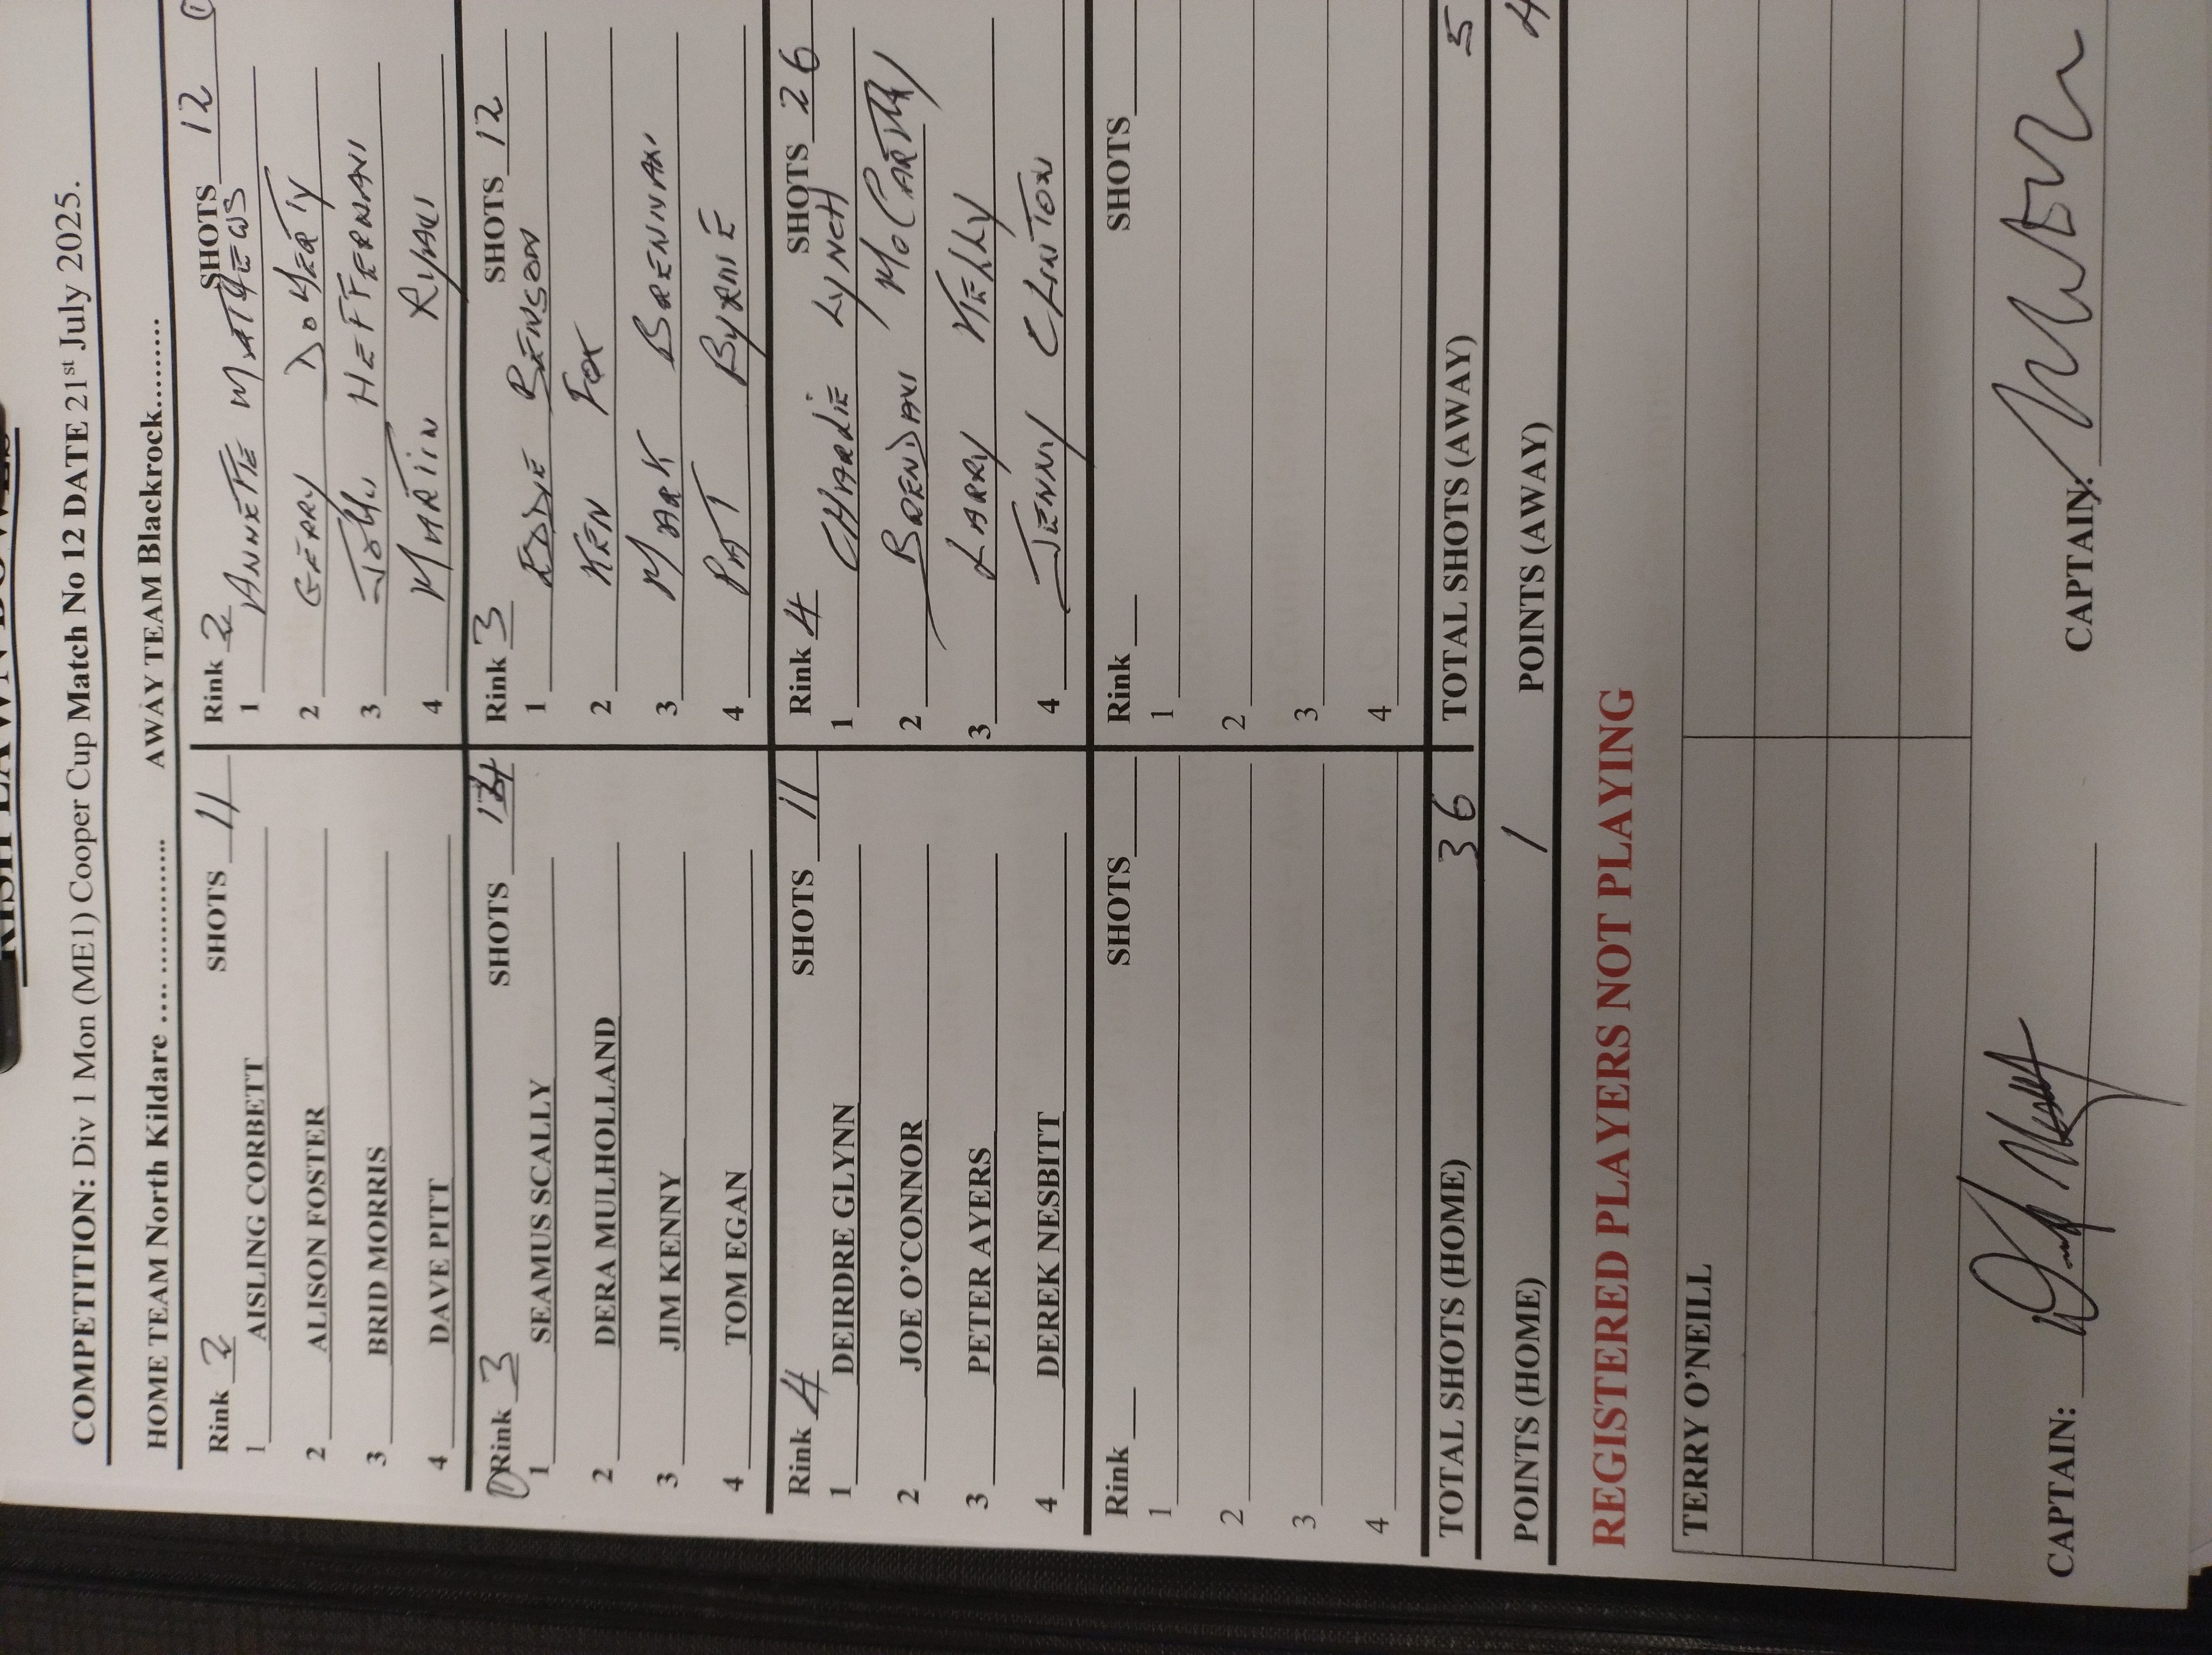 COMPETITION: Div 1 Mon (ME1) Cooper Cup Match No 12 DATE 21st July 2025.
HOME TEAM North Kildare .... ............. AWAY TEAM Blackrock........
Rink 2 SHOTS 11 Rink 2 SHOTS 12
1 AISLING CORBETT 1 ANNETTE MATHEWS
2 ALISON FOSTER 2 GERRY DOHERTY
3 BRID MORRIS 3 JOHN HEFFERNAN
4 DAVE PITT 4 MARTIN RYAN
Rink 3 SHOTS Rink 3 SHOTS 12
1 SEAMUS SCALLY 1 EDDIE BENSON
2 DERA MULHOLLAND 2 KEN FOX
3 JIM KENNY 3 MARK BRENNAN
4 TOM EGAN 4 PAT BYRNE
Rink 4 SHOTS 11 Rink 4 SHOTS 26
1 DEIRDRE GLYNN 1 CHARLIE LYNCH
2 JOE O'CONNOR 2 BRENDAN McCARTHY
3 PETER AYERS 3 LARRY KELLY
4 DEREK NESBITT 4 JENNY CLINTON
Rink SHOTS Rink SHOTS
1 1
2 2
3 3
4 4
TOTAL SHOTS (HOME) 36 TOTAL SHOTS (AWAY) 5
POINTS (HOME) 1 POINTS (AWAY) 4
REGISTERED PLAYERS NOT PLAYING
TERRY O'NEILL
CAPTAIN: CAPTAIN: